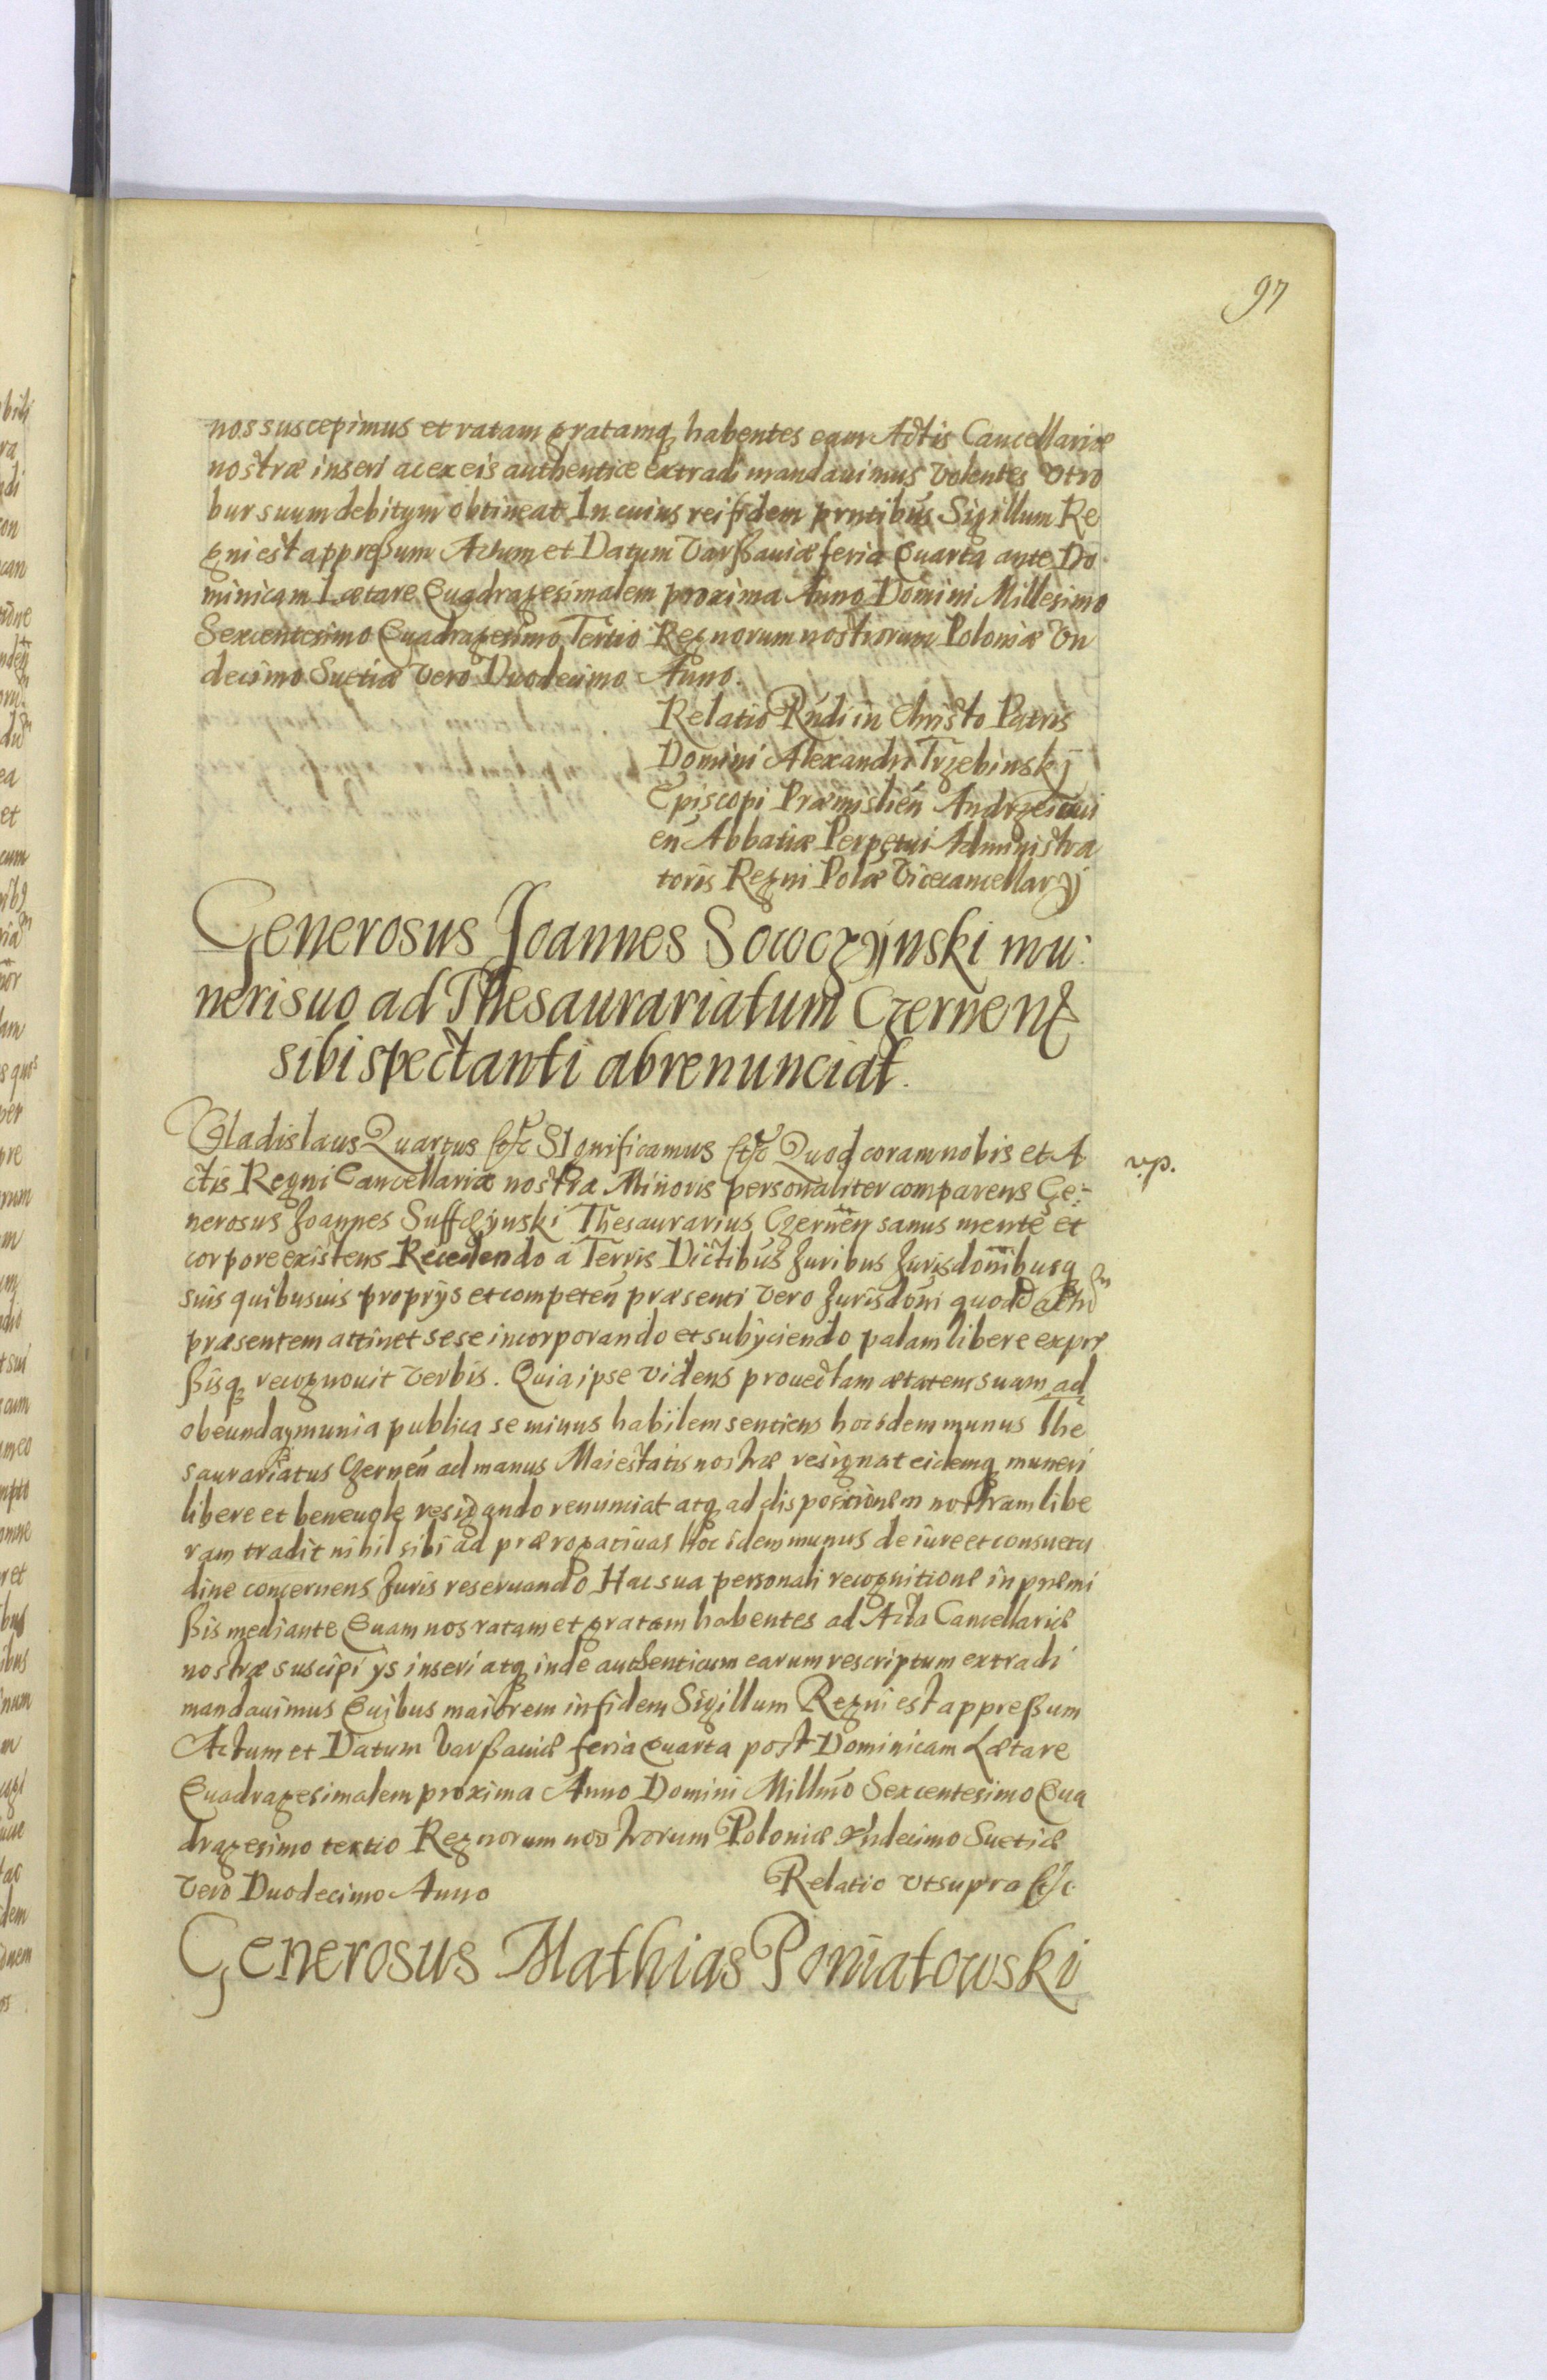 97
nos suscepimus et ratam gratamq habentes eam Actis Cancellariæ
nostræ inseri ac ex eis authentice extradi mandauimus volentes vt ro
bur suum debitum obtineat In cuius rei fidem prntibus Sigillum Re
gni est appreßum Actum et Datum Varßauiæ feria Quarta ante Do
minicam Lætare Quadragesimalem proxima Anno Domini Millesimo
Sexcentesimo Quadragesimo Tertio Regnorum nostrorum Poloniæ Vn
decimo Suetiæ vero Duodecimo Anno.
Relatio Rndi in Christo Patris
Domini Alexandri Trzebinskj
Episcopi Præmislien Andrzeioui
en Abbatiæ Perpetui Administra
toris Regni Polæ Vicecancellarij
Generosus Joannes Sowczynski mu:
neri suo ad Thesaurariatum Czernen
sibi spectanti abrenunciat.
Vladislaus Quartus &c Significamus &c Quod coram nobis et A
ctis Regni Cancellariæ nostra Minoris personaliter comparens Ge:
nerosus Joannes Suffczynski Thesaurarius Czernen sanus mente et
corpore existens Recedendo a Terris Dictibus Juribus Jurisdonibusq
suis quibusuis proprijs et competen præsenti vero Jurisdoni quoad actum
præsentem attinet sese incorporando et subijciendo palam libere expre
ßisq recognouit verbis. Quia ipse videns prouectam ætatem suam ad
obeunda munia publica se minus habilem sentiens hoc idem munus The
saurariatus Czernen ad manus Maiestatis nostræ resignat eidemq muneri
libere et beneuole resignando renunciat atq ad dispositionem nostram libe
ram tradit nihil sibi ad prærogatiuas hoc idem munus de iure et consuetu
dine concernens Juris reseruando Hac sua personali recognitione in præmi
ßis mediante Quam nos ratam et gratam habentes ad Acta Cancellariæ
nostræ suscipi ijs inseri atq inde authenticum earum rescriptum extradi
mandauimus Quibus maiorem in fidem Sigillum Regni est appreßum
Actum et Datum Varßauiæ feria Quarta post Dominicam Lætare
Quadragesimalem proxima Anno Domini Millmo Sexcentesimo Qua
dragesimo tertio Regnorum nostrorum Poloniæ Vndecimo Suetiæ
vero Duodecimo Anno Relatio vt supra &c
Generosus Mathias Poniatowski